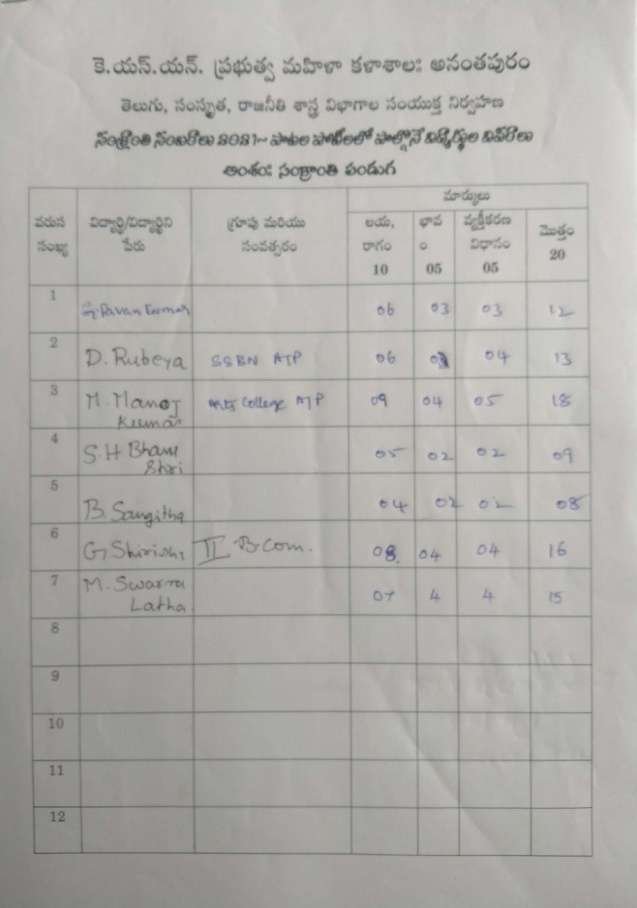 కె.యస్.యన్. ప్రభుత్వ మహిళా కళాశాల: అనంతపురం
తెలుగు, సంస్కృత, రాజనీతి శాస్త్ర విభాగాల సంయుక్త నిర్వహణ
సంక్రాంతి సంబరాలు 2021- పాటల పోటీలలో పాల్గొనే విద్యార్థుల వివరాలు
అంశం: సంక్రాంతి పండుగ
వరుస సంఖ్య విద్యార్థి/విద్యార్థిని పేరు గ్రూపు మరియు సంవత్సరం మార్కులు
లయ, రాగం 10 భావం 05 వ్యక్తీకరణ విధానం 05 మొత్తం 20
1 G. Pavan Kumar 06 03 03 12
2 D. Rubeya SSBN ATP 06 04 13
3 M. Manoj Kumar Arts College ATP 09 04 05 18
4 S.H Bhanu Shri 05 02 02 09
5 B. Sangitha 04 02 02 08
6 G Shirisha II B.Com. 08. 04 04 16
7 M. Swarna Latha 07 4 4 15
8
9
10
11
12